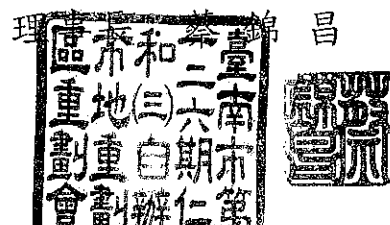 理事長 蔡錦昌
臺南市第
二六期仁
和(三)自辦
市地重劃
區重劃會